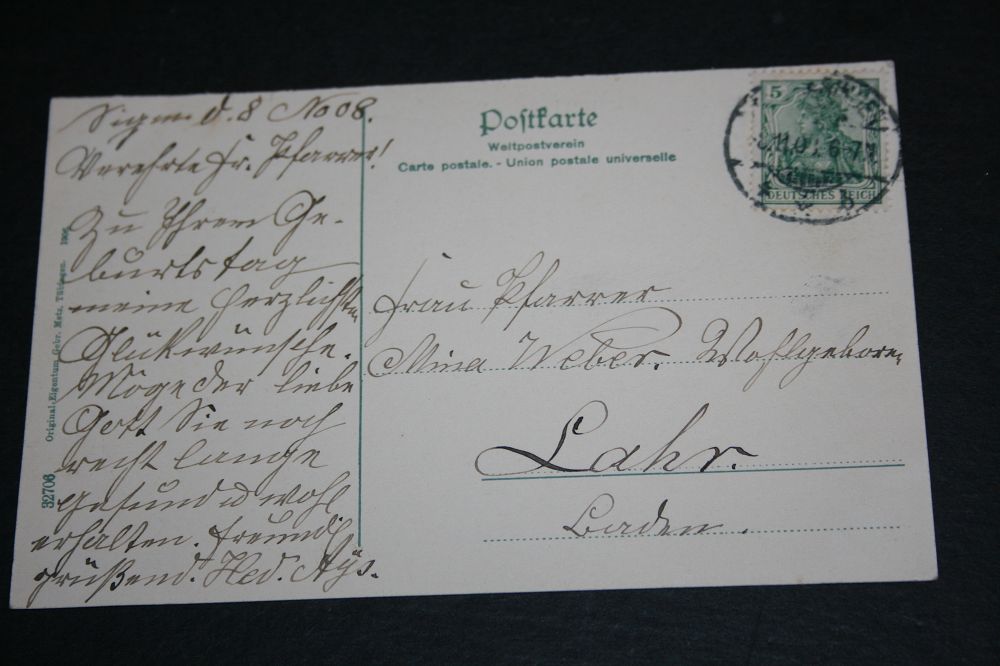 Sigm. d. 8 Nov 08.
Verehrte Fr. Pfarrer!
Zu Ihrem Ge-
burtstag
meine herzlichsten
Glückwünsche.
Möge der liebe
Gott Sie noch
recht lange
gesund u wohl
erhalten. Freundl.
grüßend. Hed.
Postkarte
Weltpostverein
Carte postale. - Union postale universelle
5
DEUTSCHES REICH
Frau Pfarrer
Mina Weber. Wohlgeboren
Lahr.
Baden.
32706 Original-Eigentum Gebr. Metz, Tübingen. 1906